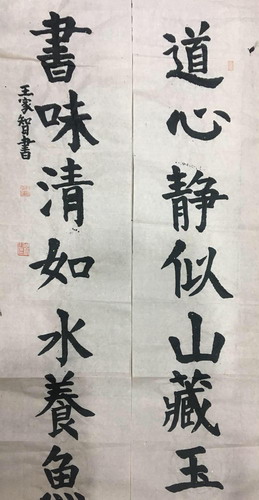 道心静似山藏玉
書味清如水養魚
王家智書